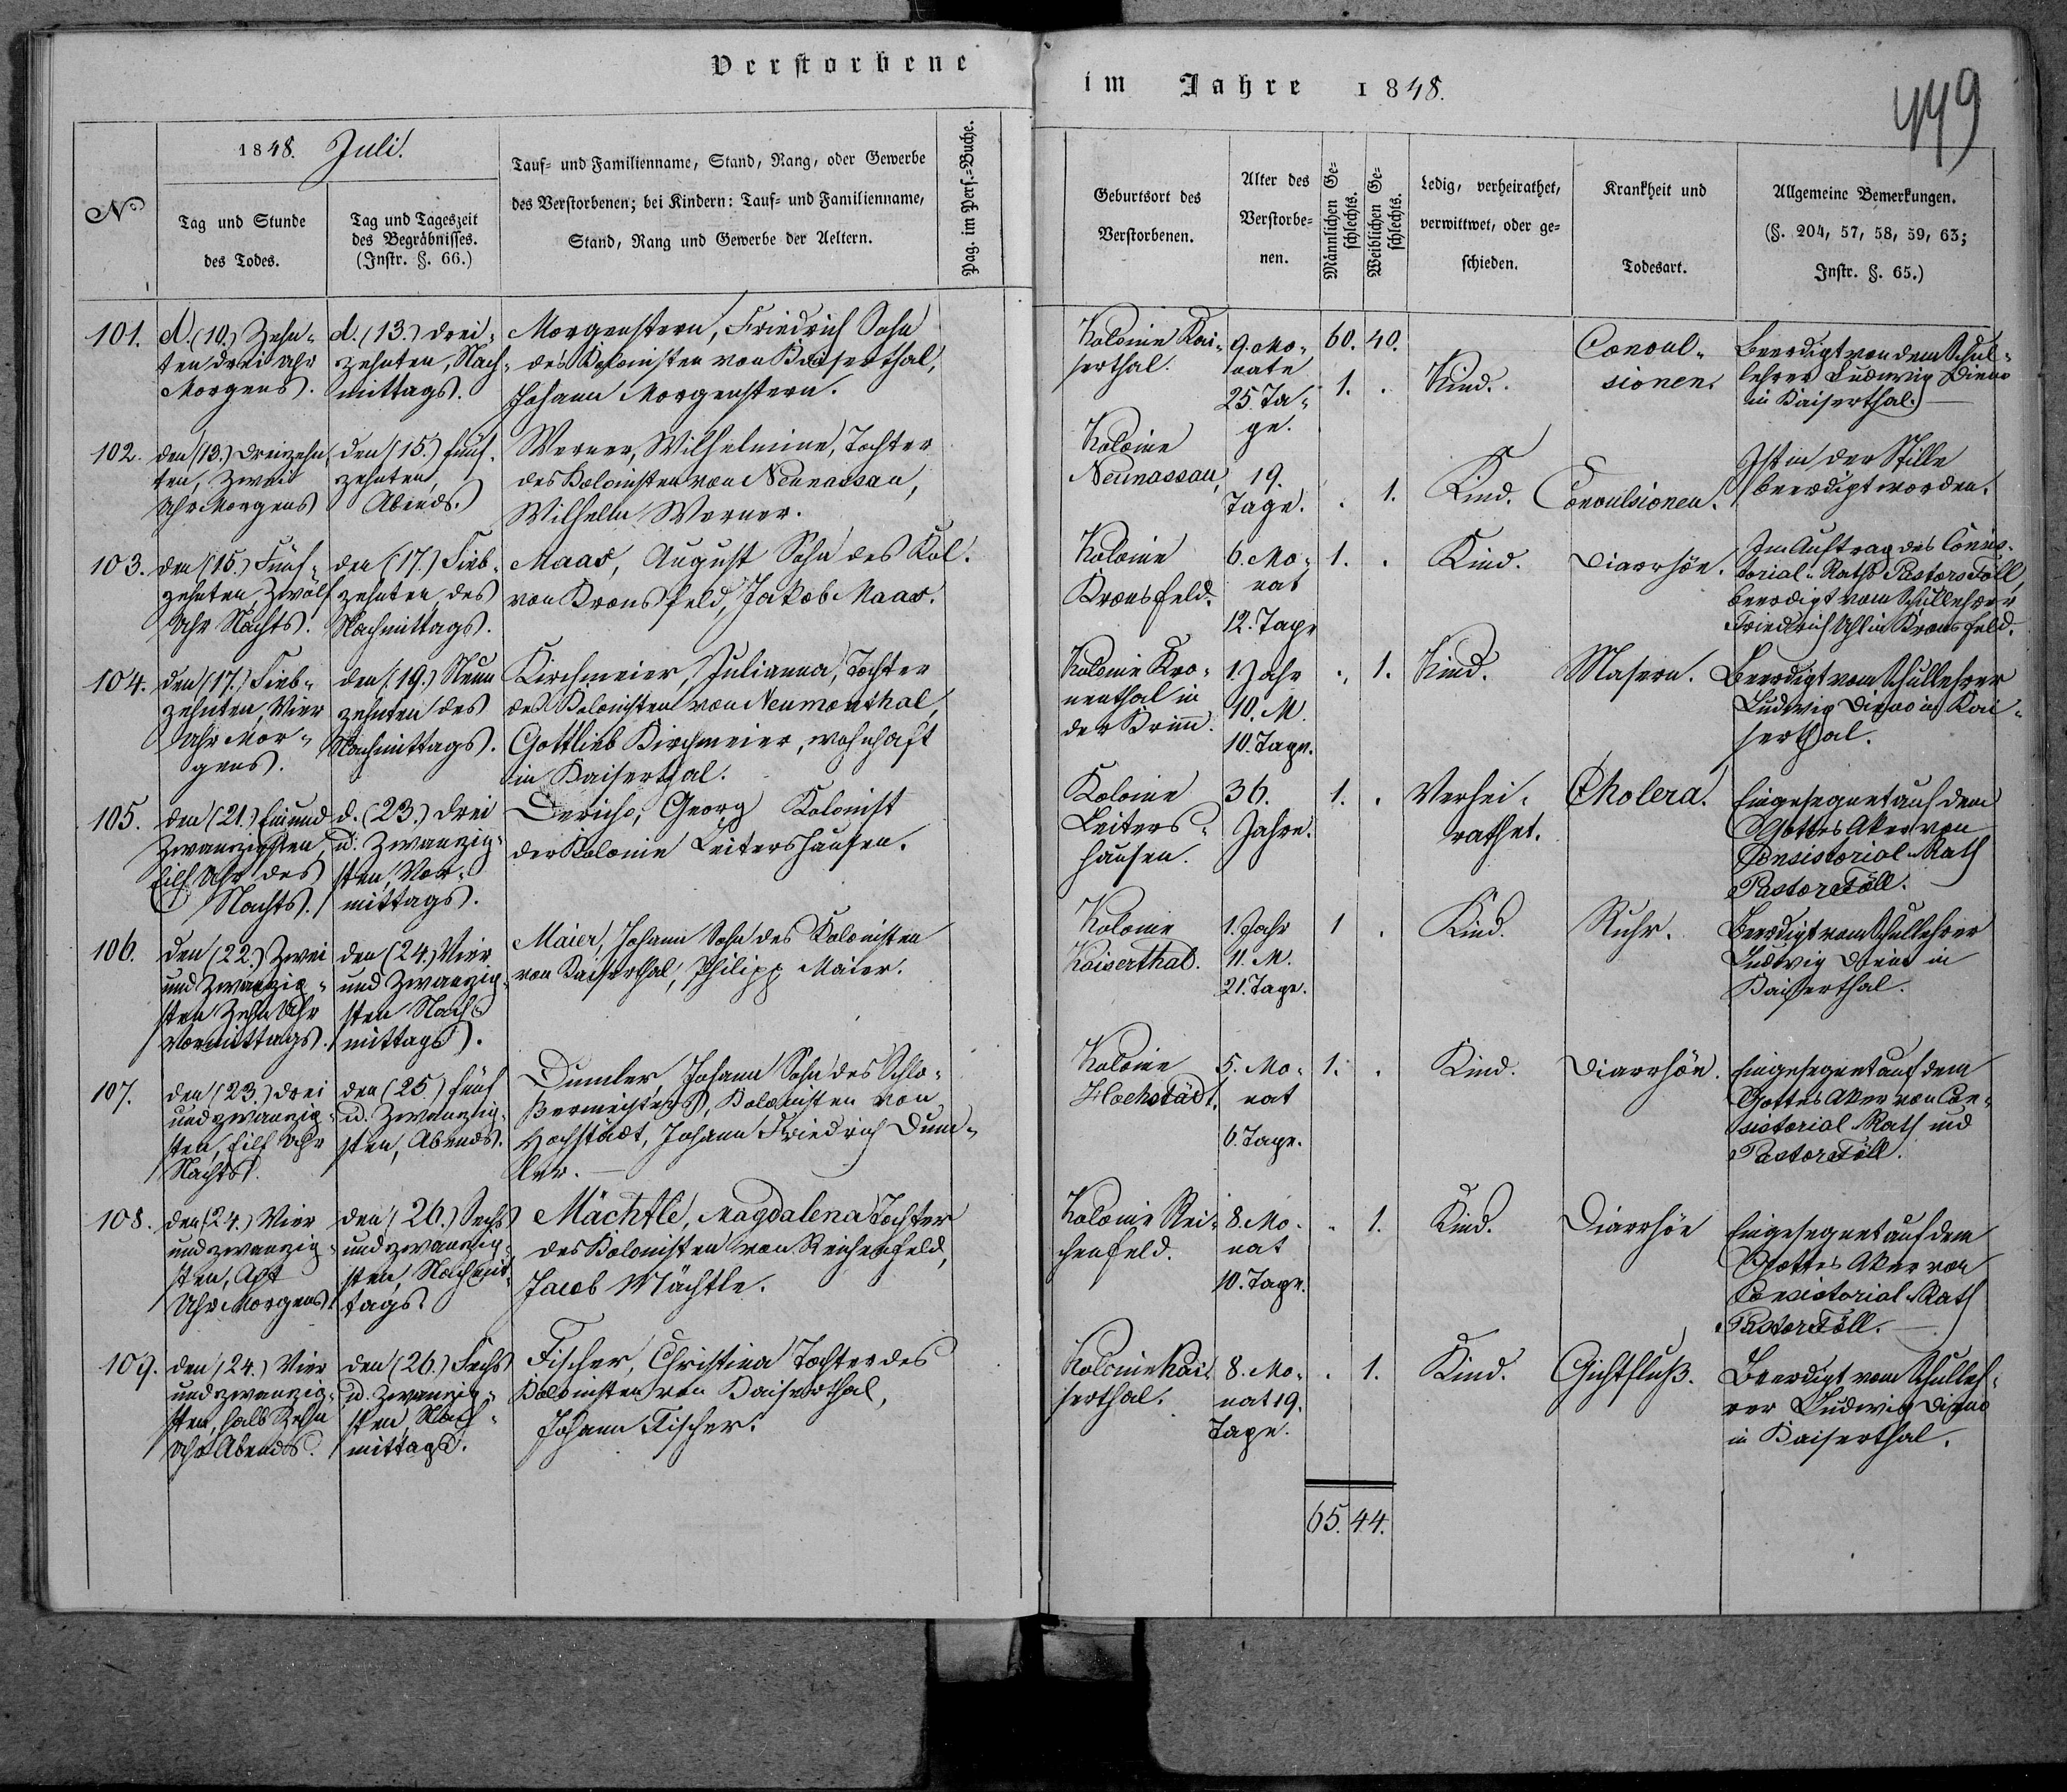 Verstorbene
im Jahre 1848.
449
No
1848. Juli.
Tag und Stunde
des Todes.
Tag und Tageszeit
des Begräbnisses.
(Instr. §. 66.)
Tauf- und Familienname, Stand, Rang, oder Gewerbe
des Verstorbenen; bei Kindern: Tauf- und Familienname,
Stand, Rang und Gewerbe der Aeltern.
Pag. im Pers.-Buche.
Geburtsort des
Verstorbenen.
Alter des
Verstorbe-
nen.
Männlichen Ge-
schlechts.
Weiblichen Ge-
schlechts.
Ledig, verheirathet,
verwittwet, oder ge-
schieden.
Krankheit und
Todesart.
Allgemeine Bemerkungen.
(§. 204, 57, 58, 59, 63;
Instr. §. 65.)
101.
d. (10.) Zehn-
ten drei Uhr
Morgens.
d. (13.) drei-
zehnten, Nach-
mittags.
Morgenstern, Friedrich Sohn
des Kolonisten von Kaiserthal,
Johann Morgenstern.
Kolonie Kai-
serthal.
9. Mo-
nate
25. Ta-
ge.
60. 40.
1. .
Kind.
Convul-
sionen.
Beerdigt von dem Schul-
lehrer Ludwig
in Kaiserthal.
102.
den (13.) dreizehn
ten, Zwei
Uhr Morgens
den (15.) fünf-
zehnten,
Abends.
Werner, Wilhelmine, Tochter
des Kolonisten von Neunassau,
Wilhelm Werner.
Kolonie
Neunassau,
19.
Tage.
. 1.
Kind.
Convulsionen.
Ist in der Stille
beerdigt worden.
103.
den (15.) Fünf-
zehnten, Zwölf
Uhr Nachts.
den (17.) Sieb-
zehnten des
Nachmittags.
Maas, August Sohn des Kol.
von Kronsfeld, Jakob Maas.
Kolonie
Kronsfeld.
6. Mo-
nat
12. Tage
1. .
Kind.
Diarrhöe.
Im Auftrag des Consis-
torial-Raths Pastors Föll,
beerdigt vom Schullehrer
Friedrich Uhl in Kronsfeld.
104.
den (17.) Sieb-
zehnten, Vier
Uhr Mor-
gens.
den (19.) Neun
zehnten des
Nachmittags.
Kirchmeier, Julianna, Tochter
des Kolonisten von Neumonthal,
Gottlieb Kirchmeier, wohnhaft
in Kaiserthal.
Kolonie Kro-
nenthal in
der Krim̄.
1. Jahr
10. M.
10. Tage.
. 1.
Kind.
Masern.
Beerdigt vom Schullehrer
Ludwig in Kai-
serthal.
105.
den (21.) Ein und
Zwanzigsten
Eilf Uhr des
Nachts.
d. (23.) drei
u. Zwanzig-
sten, Vor-
mittags.
Derichs, Georg Kolonist
der Kolonie Leitershausen.
Kolonie
Leiters-
hausen.
36.
Jahre.
1. .
Verhei-
rathet.
Cholera.
Eingesegnet auf dem
Gottes Aker von
Consistorial-Rath
Pastor Föll.
106.
den (22.) Zwei
und Zwanzig-
sten Zehn Uhr
Vormittags.
den (24.) Vier
und Zwanzig-
sten Nach
mittags.
Maier, Johann Sohn des Kolonisten
von Kaiserthal, Philipp Maier.
Kolonie
Kaiserthal.
1. Jahr
11. M.
21. Tage.
1 .
Kind.
Ruhr.
Beerdigt vom Schullehrer
Ludwig in
Kaiserthal.
107.
den (23.) drei
und zwanzig-
sten, Eilf Uhr
Nachts.
den (25.) fünf
u. Zwanzig-
sten, Abends.
Dumler, Johann Sohn des Schlo-
ßermeisters, Kolonisten von
Hochstädt, Johann Friedrich Dum-
ler.
Kolonie
Hochstädt.
5. Mo-
nat
6. Tage.
1. .
Kind.
Diarrhöe.
Eingesegnet auf dem
Gottes Aker von Con-
sistorial-Rath und
Pastor Föll.
108.
den (24.) Vier
und zwanzig-
sten, Acht
Uhr Morgens
den (26.) Sechs
und zwanzig-
sten, Nachmit-
tags.
Mächtle, Magdalena Tochter
des Kolonisten von Reichenfeld,
Jacob Mächtle.
Kolonie Rei-
chenfeld.
8. Mo-
nat
10. Tage.
. 1.
Kind.
Diarrhöe
Eingesegnet auf dem
Gottes Aker von
Consistorial-Rath
Pastor Föll.
109.
den (24.) Vier
und zwanzig-
sten, halb Zehn
Uhr Abends.
den (26.) Sechs
u. Zwanzig-
sten Nach-
mittags.
Fischer, Christina Tochter des
Kolonisten von Kaiserthal,
Johann Fischer.
Kolonie Kai-
serthal.
8. Mo-
nat 19.
Tage.
. 1.
Kind.
Gichtfluß.
Beerdigt vom Schulleh-
rer Ludwig
in Kaiserthal.
65. 44.